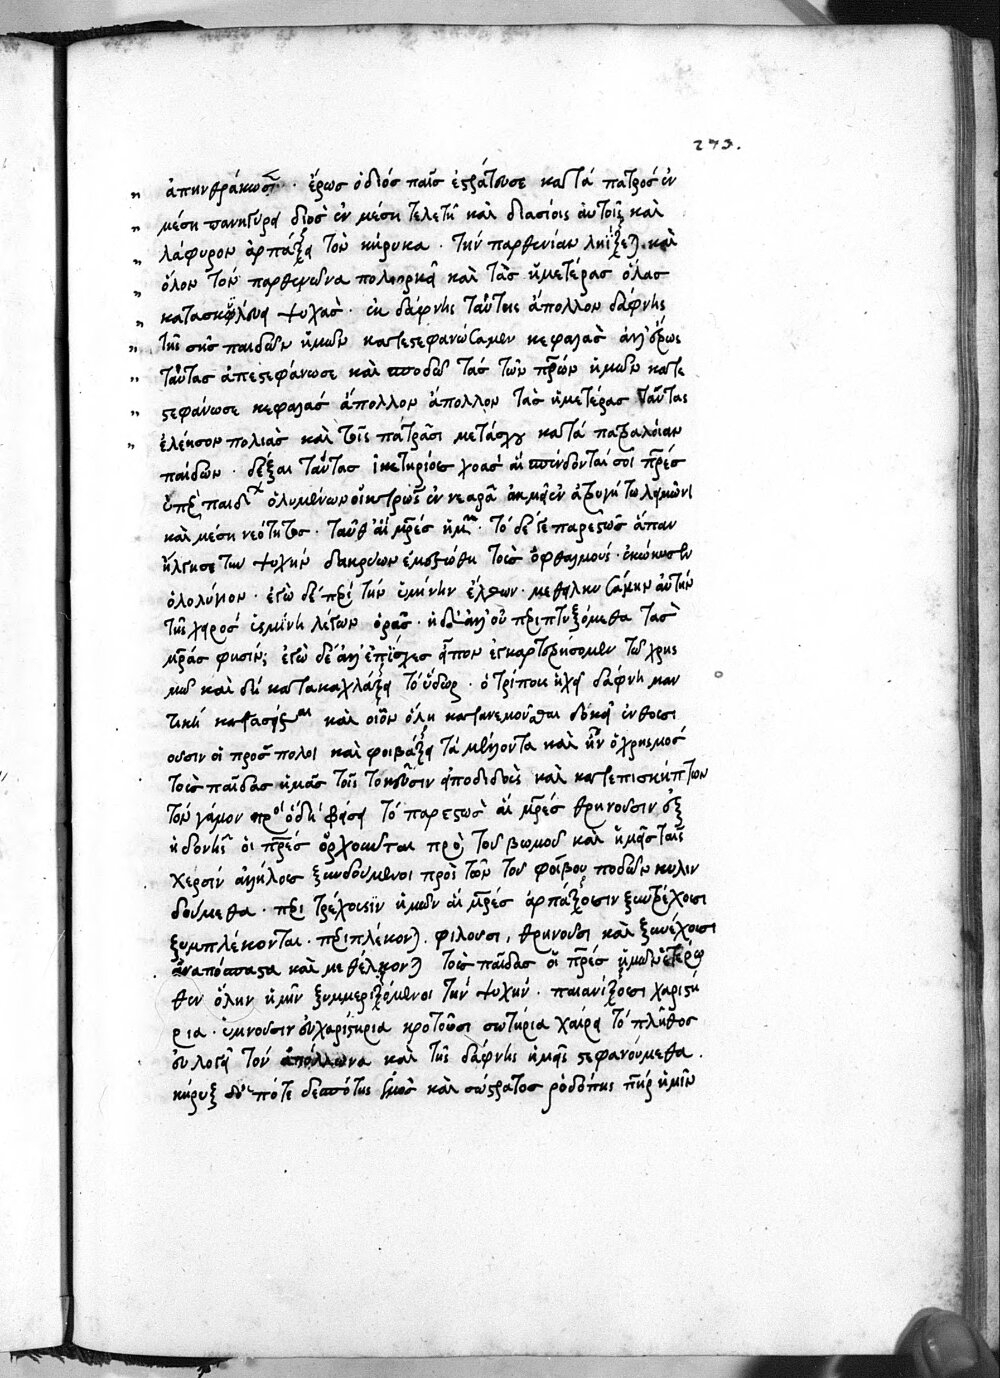 273.
ἀπηνθράκωσεν. ἔρως ὁ διὸς παῖς ἐστράτευσε κατὰ πατρὸς ἐν
μέση πανηγύρει διὸς ἐν μέση τελετῆ καὶ διασίοις αὐτοῖς καὶ
λάφυρον ἁρπάζει τὸν κήρυκα. τὴν παρθενίαν ληΐζεται καὶ
ὅλον τὸν παρθενῶνα πολιορκεῖ καὶ τὰς ἡμετέρας ὅλας
κατασκυλεύει ψυχάς. ἐκ δάφνης ταύτης ἄπολλον δάφνης
τῆς σῆς παιδων ἡμῶν κατεστεφανώσαμεν κεφαλὰς ἀλλ' ἔρως
ταύτας ἀπεστεφάνωσε καὶ σποδῶ τὰς τῶν πρων ἡμῶν κατε
στεφάνωσε κεφαλάς ἄπολλον ἄπολλον τὰς ἡμετέρας ταύτας
ἐλέησον πολιὰς καὶ τοῖς πατράσι μετάσχου κατὰ παῖδων
παίδων. δέξαι ταύτας ἱκετηρίους χοὰς ἃς σπένδονταί σοι πρες
ὑπὲρ παιδων ὀλωμένων οἰκτρῶς ἐν νεαρᾶ ἀκμῆ ἐν ἀζυγῆ τῶ λειμῶνι
καὶ μέση νεότητος. ταῦθ' αἱ μρες ἡμων. τὸ δέ γε παρεστὼς ἅπαν
ἤλγησε τὴν ψυχὴν δακρύων ἐμεστώθη τοὺς ὀφθαλμούς. ἐκώκυσεν
ὀλολύγιον. ἐγὼ δὲ περὶ τὴν ὑσμίνην ἐλθὼν. μεθηλκυσάμην αὐτὴν
τῆς χειρός ὑσμίνη λέγων ὁρᾶς. ἡ δὲ ἀλλ' οὐ περιπτυξόμεθα τὰς
μρας φησίν; ἐγὼ δὲ ἀλλ' ἐπίσχες εἶπον ἐγκαρτερήσομεν τῶ χρης
μῶ καὶ δὴ κατακαχλάζει τὸ ὕδωρ. ὁ τρίπους ἠχεῖ δάφνη μαν
τικὴ κατασείεται καὶ οἷον ὅλη κατανεμοῦται δοκεῖ ἐνθουσι
ουσιν οἱ πρόσπολοι καὶ φοιβάζει τὰ μέλλοντα καὶ ἦν ὁ χρησμὸς
τοὺς παῖδας ἡμᾶς τοῖς τοκεῦσιν ἀποδιδοὺς καὶ κατεπισκήπτων
τὸν γάμον προ ὅδη βάσει τὸ παρεστὼς αἱ μρες θρηνοῦσιν ἐξ
ἡδονῆς οἱ πρες ὀρχοῦνται πρὸ τοῦ βωμοῦ καὶ ἡμᾶς ταῖς
χερσὶν ἀλλήλοις ξυνδούμενοι πρὸς τῶν τοῦ φοίβου ποδῶν κυλιν
δούμεθα. περιτρέχουσιν ἡμῶν αἱ μρες ἁρπάζουσιν ξυντρέχουσι
ξυμπλέκονται. περιπλέκονται φιλοῦσι, θρηνοῦσι καὶ ξυνέχουσι
ἀναπόσπαστα καὶ μεθέλκονται τοὺς παῖδας οἱ πρες ἡμῶν ἑτέρω
θεν ὅλην ἡμῖν ξυμμεριζόμενοι τὴν ψυχήν. παιανίζουσι χαριστή
ρια. ὑμνοῦσιν εὐχαριστήρια κροτοῦσι σωτήρια χαίρει τὸ πλῆθος
εὐλογεῖ τὸν ἀπόλλωνα καὶ τῆς δάφνης ἡμεῖς στεφανούμεθα.
κῆρυξ ὅ ποτε δεσπότης ἐμὸς καὶ σώστρατος ῥοδόπης πηρ ἡμῖν